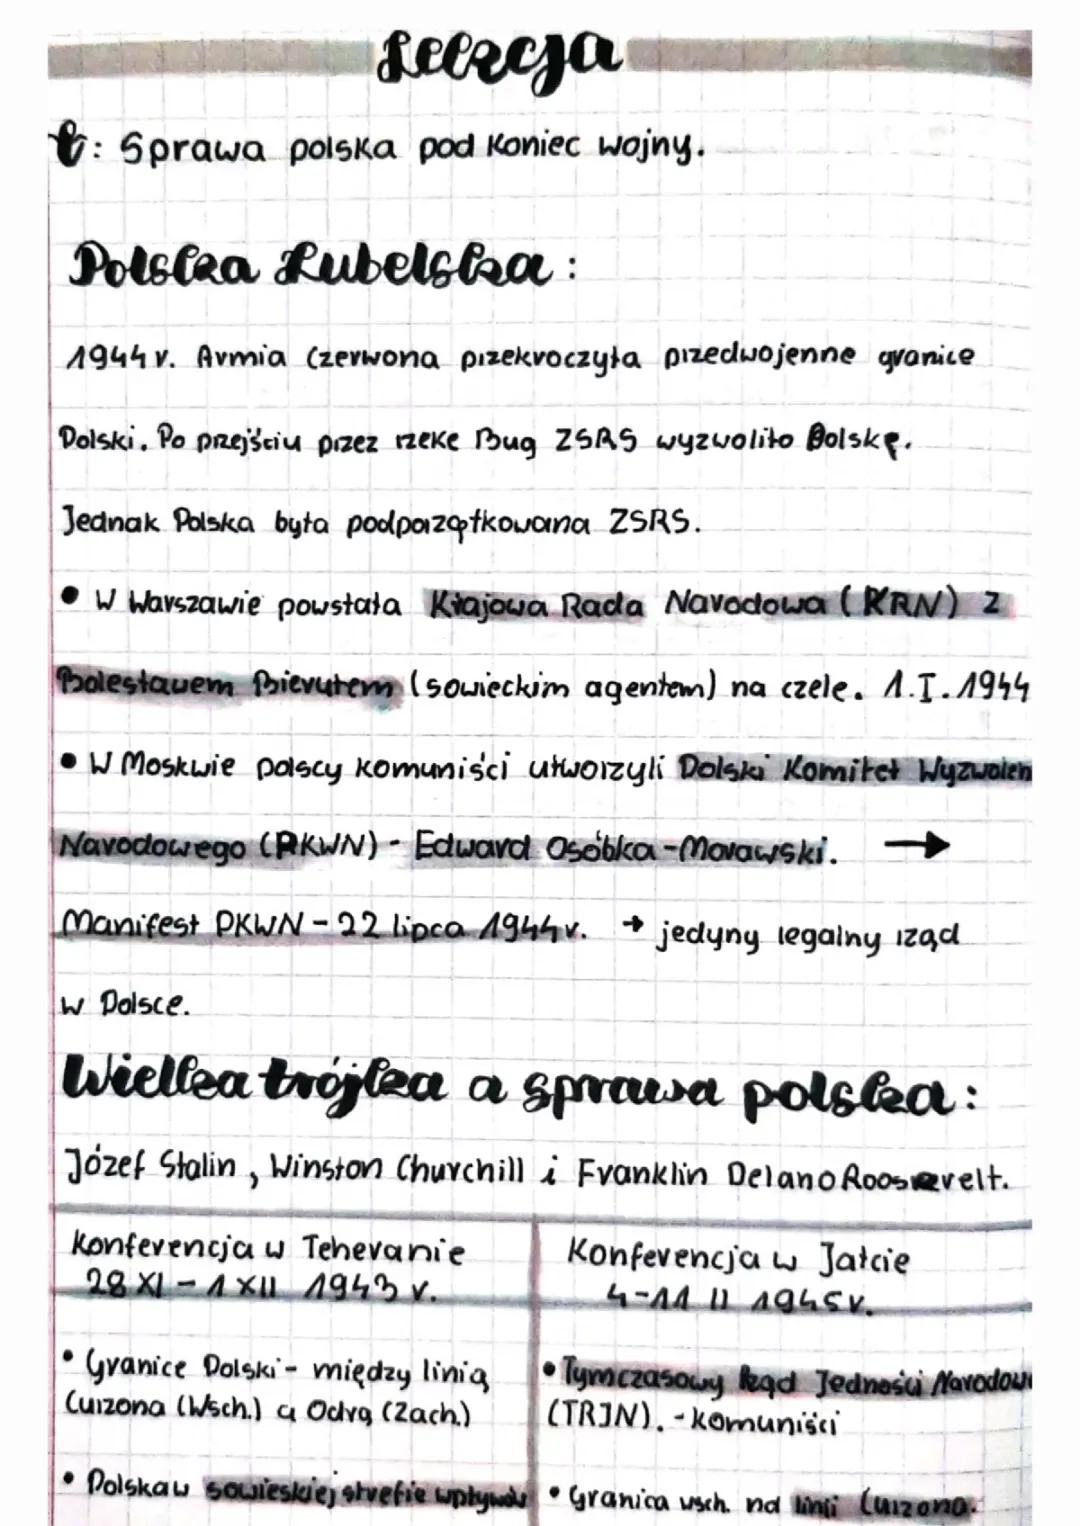 Lekcja
t: Sprawa polska pod koniec wojny.
Polska Lubelska:
1944 r. Armia Czerwona przekroczyła przedwojenne granice
Polski. Po przejściu przez rzeke Bug ZSRS wyzwoliło Polskę.
Jednak Polska była podporządkowana ZSRS.
• W Warszawie powstała Krajowa Rada Narodowa (KRN) z
Bolesławem Bierutem (sowieckim agentem) na czele. 1.I.1944
• W Moskwie polscy komuniści utworzyli Polski Komitet Wyzwolen
Narodowego (PKWN) - Edward Osóbka-Morawski. →
Manifest PKWN - 22 lipca 1944 r. → jedyny legalny rząd
w Polsce.
Wielka trójka a sprawa polska:
Józef Stalin, Winston Churchill i Franklin Delano Roosevelt.
Konferencja w Teheranie
28 XI - 1 XII 1943 r.
• Granice Polski - między linią
Curzona (Wsch.) a Odrą (Zach.)
• Polska w sowieskiej strefie wpływów
Konferencja w Jałcie
4-11 II 1945 r.
• Tymczasowy Rząd Jedności Narodow
(TRJN). - komuniści
• Granica wsch. na linii Curzona.